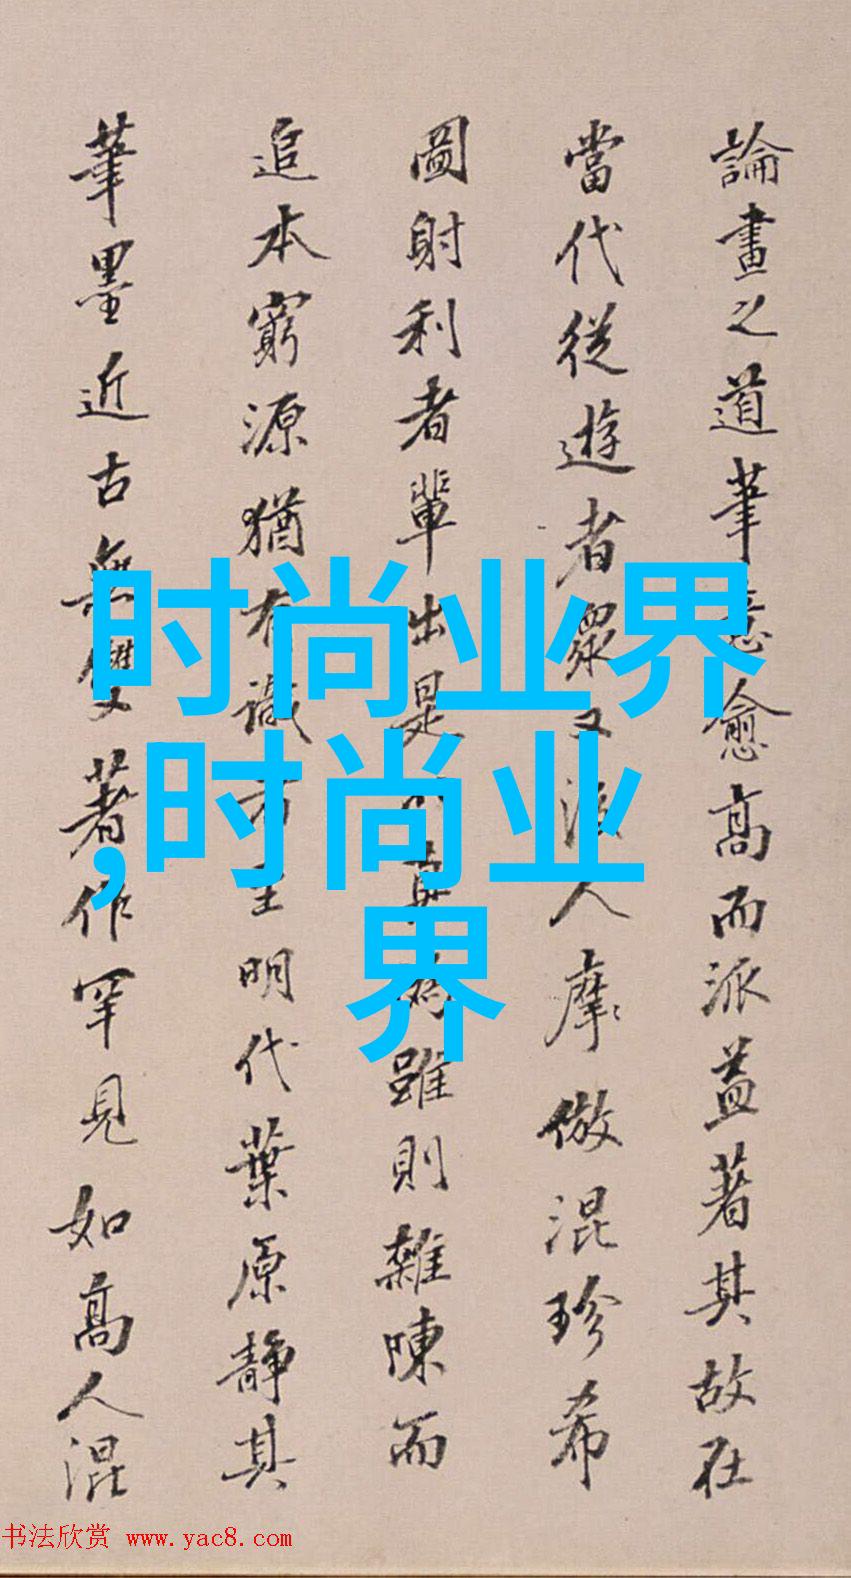 論畫之道筆意愈高而派益著其故在
當代從遊者眾又後人摩倣混珍希
圖射利者輩出是以真偽雖則雜陳而
追本窮源猶有識者至明代葉原靜其
筆墨近古無雙著作罕見如高人混
时尚业界
,时尚业
界
书法欣赏 www.yac8.com